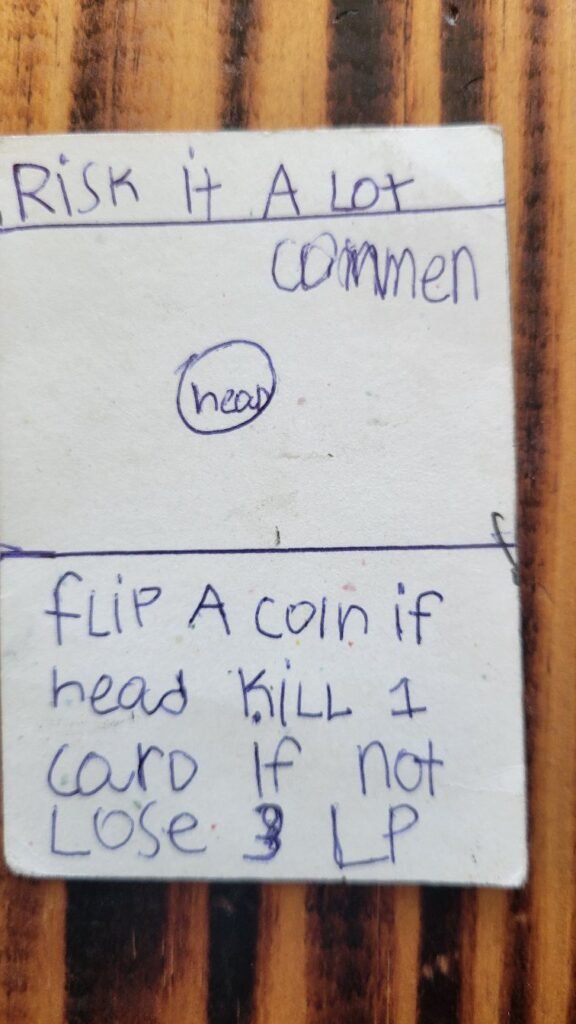 RiSK it A Lot
commen
head
fLiP A coin if
head KiLL 1
carD If not
LOSe 3 LP